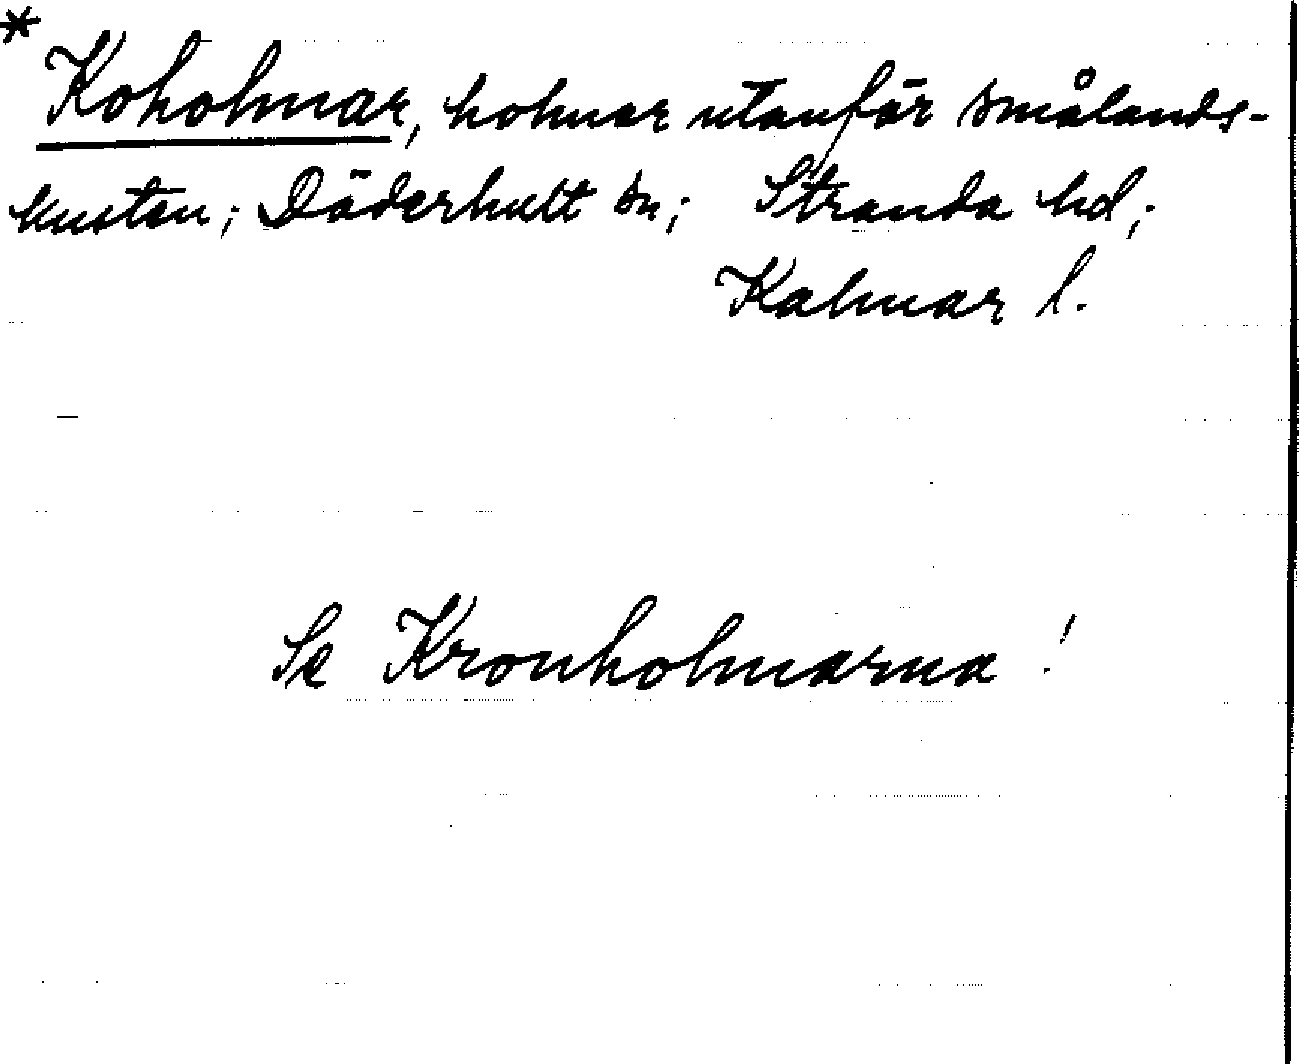 * Koholmar, holmar utanför smålands-
kusten; Döderhult sn; Stranda hd;
Kalmar l.
Se Kronholmarna!